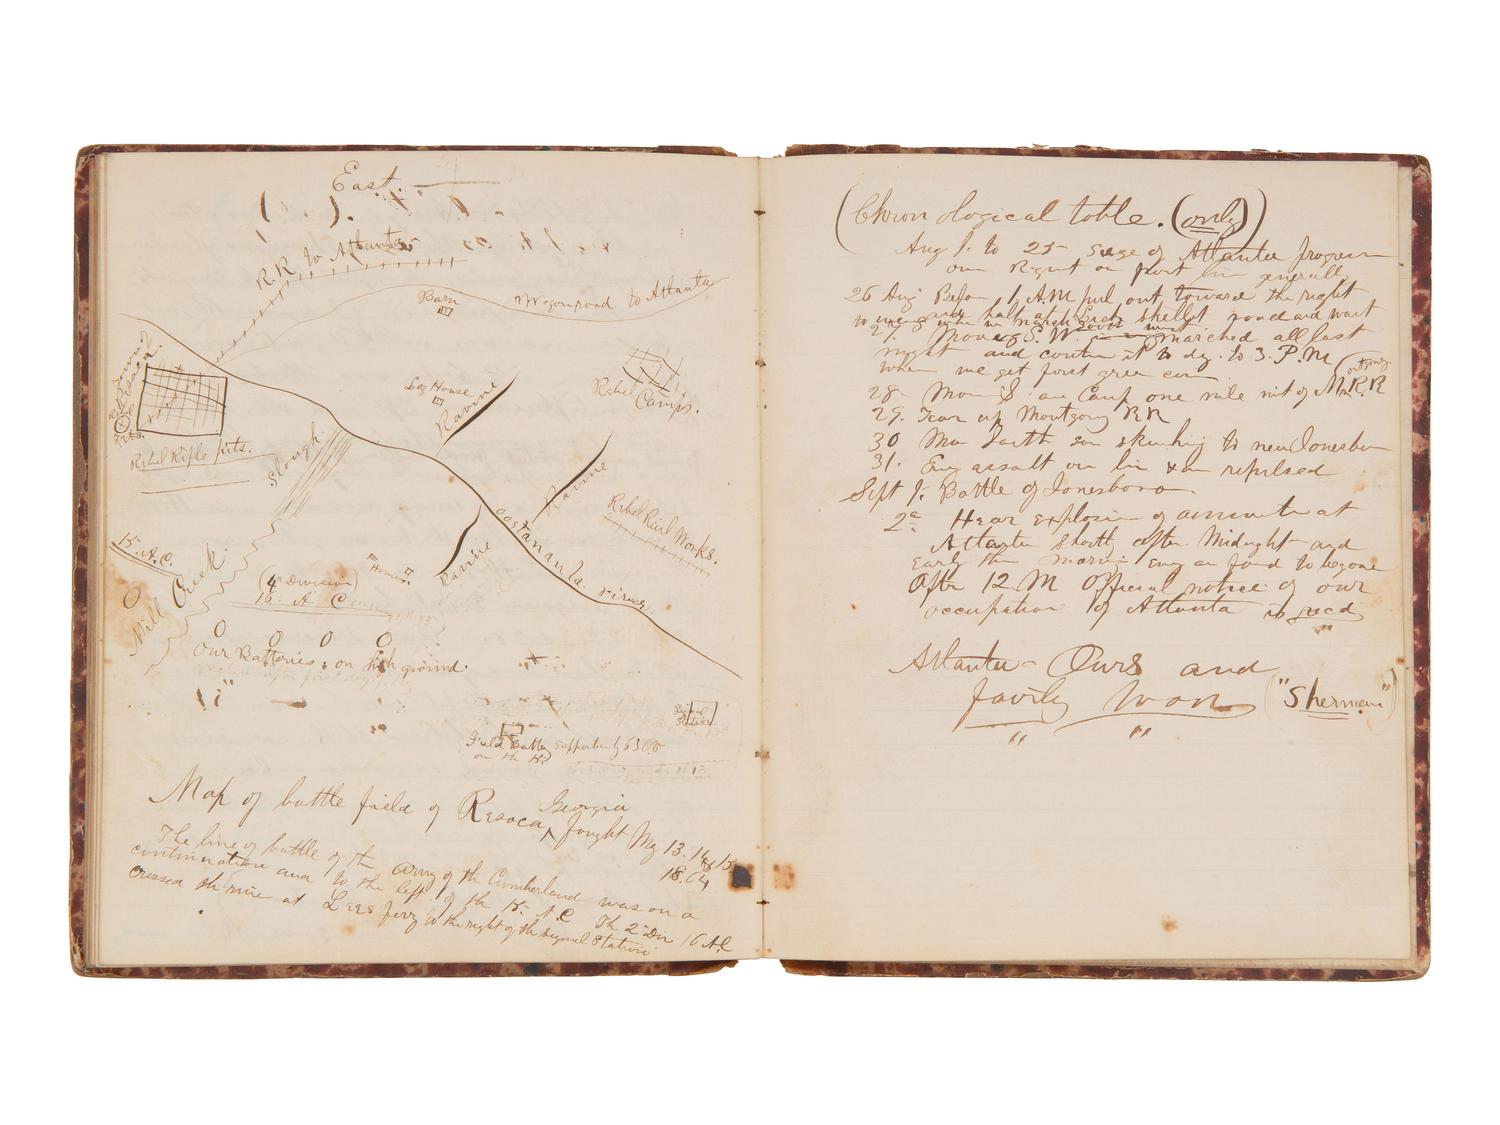 East.
RR to Atlanta
Barn
Wagon road to Atlanta
Town of Resaca.
Log House
Ravine
Rebel Camps.
Rebel Rifle pits.
Slough
Ravine
Rebel Rail Works.
Oostanaula river
15. A.C.
Mill Creek
Houses.
Ravine
(4 Division)
16. A C
Our Batteries, on high ground.
Signal Station
Field Battery supported by 63 O.
on the
Map of battle field of Resaca, Georgia fought May 13. 14 & 15
18.64
The line of battle of the army of the Cumberland was on a
continuation and to the left of the 15. A.C The 2" Div 16 A.C
crossed the river at Lees fery to the right of the signal Station.
(Chronological table. (only))
Aug 1. to 25 siege of Atlanta progress
our Regmt on front line generally
26 Aug Before 1, AM pull out toward the right
and halt at get shelled and wait
27. Move S. W. marched all last
night and continu it to day. to 3. P.M
when we get first green corn
28. Move S. an Camp one mile out of M. R.R
29. Tear up Montgomy RR
30 Mov South on to near Jonesboro
31. Eny assalt our lin repulsed
Sept 1. Battle of Jonesboro.
2d Hear explosion of amunition at
Atlanta shortly after Midnight and
early this morning eny an found to be gone
After 12 M Official notice of our
occupation of Atlanta is recd
Atlanta Ours and
fairly Won ("Sherman")